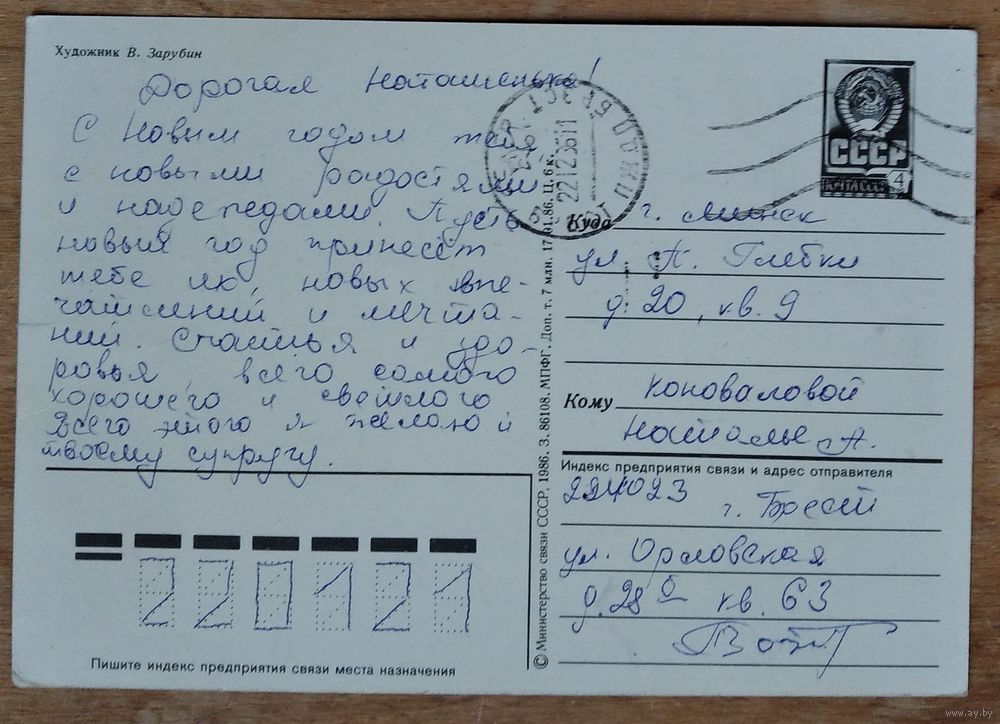 Художник В. Зарубин
Дорогая Наташенька!
С Новым годом тебя
с новыми радостями
и надеждами. Пусть
новый год принесёт
тебе новых впе-
чатлений и мечта-
ний. Счастья и здо-
ровья, всего самого
хорошего и светлого
Всего этого я желаю и
твоему супругу.
Пишите индекс предприятия связи места назначения
220121
© Министерство связи СССР, 1986. З. 86108. МПФГ. Доп. т. 7 млн. 17.01.86. Ц. 6 к.
БРЕСТ
СССР
ПОЧТА СССР
4
Куда г. Минск
ул. П. Глебки
д. 20, кв. 9
Кому Коноваловой
Наталье А.
Индекс предприятия связи и адрес отправителя
224023
г. Брест
ул. Орловская
д. 28 кв. 63
www.ay.by